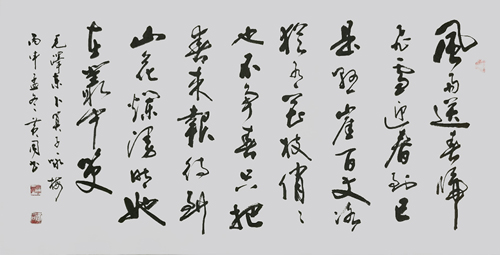 風雨送春歸
飛雪迎春到已
是懸崖百丈冰
猶有花枝俏〻
也不爭春只把
春來報待到
山花爛漫時她
在叢中笑
毛澤東卜算子詠梅
丙申孟冬黄书